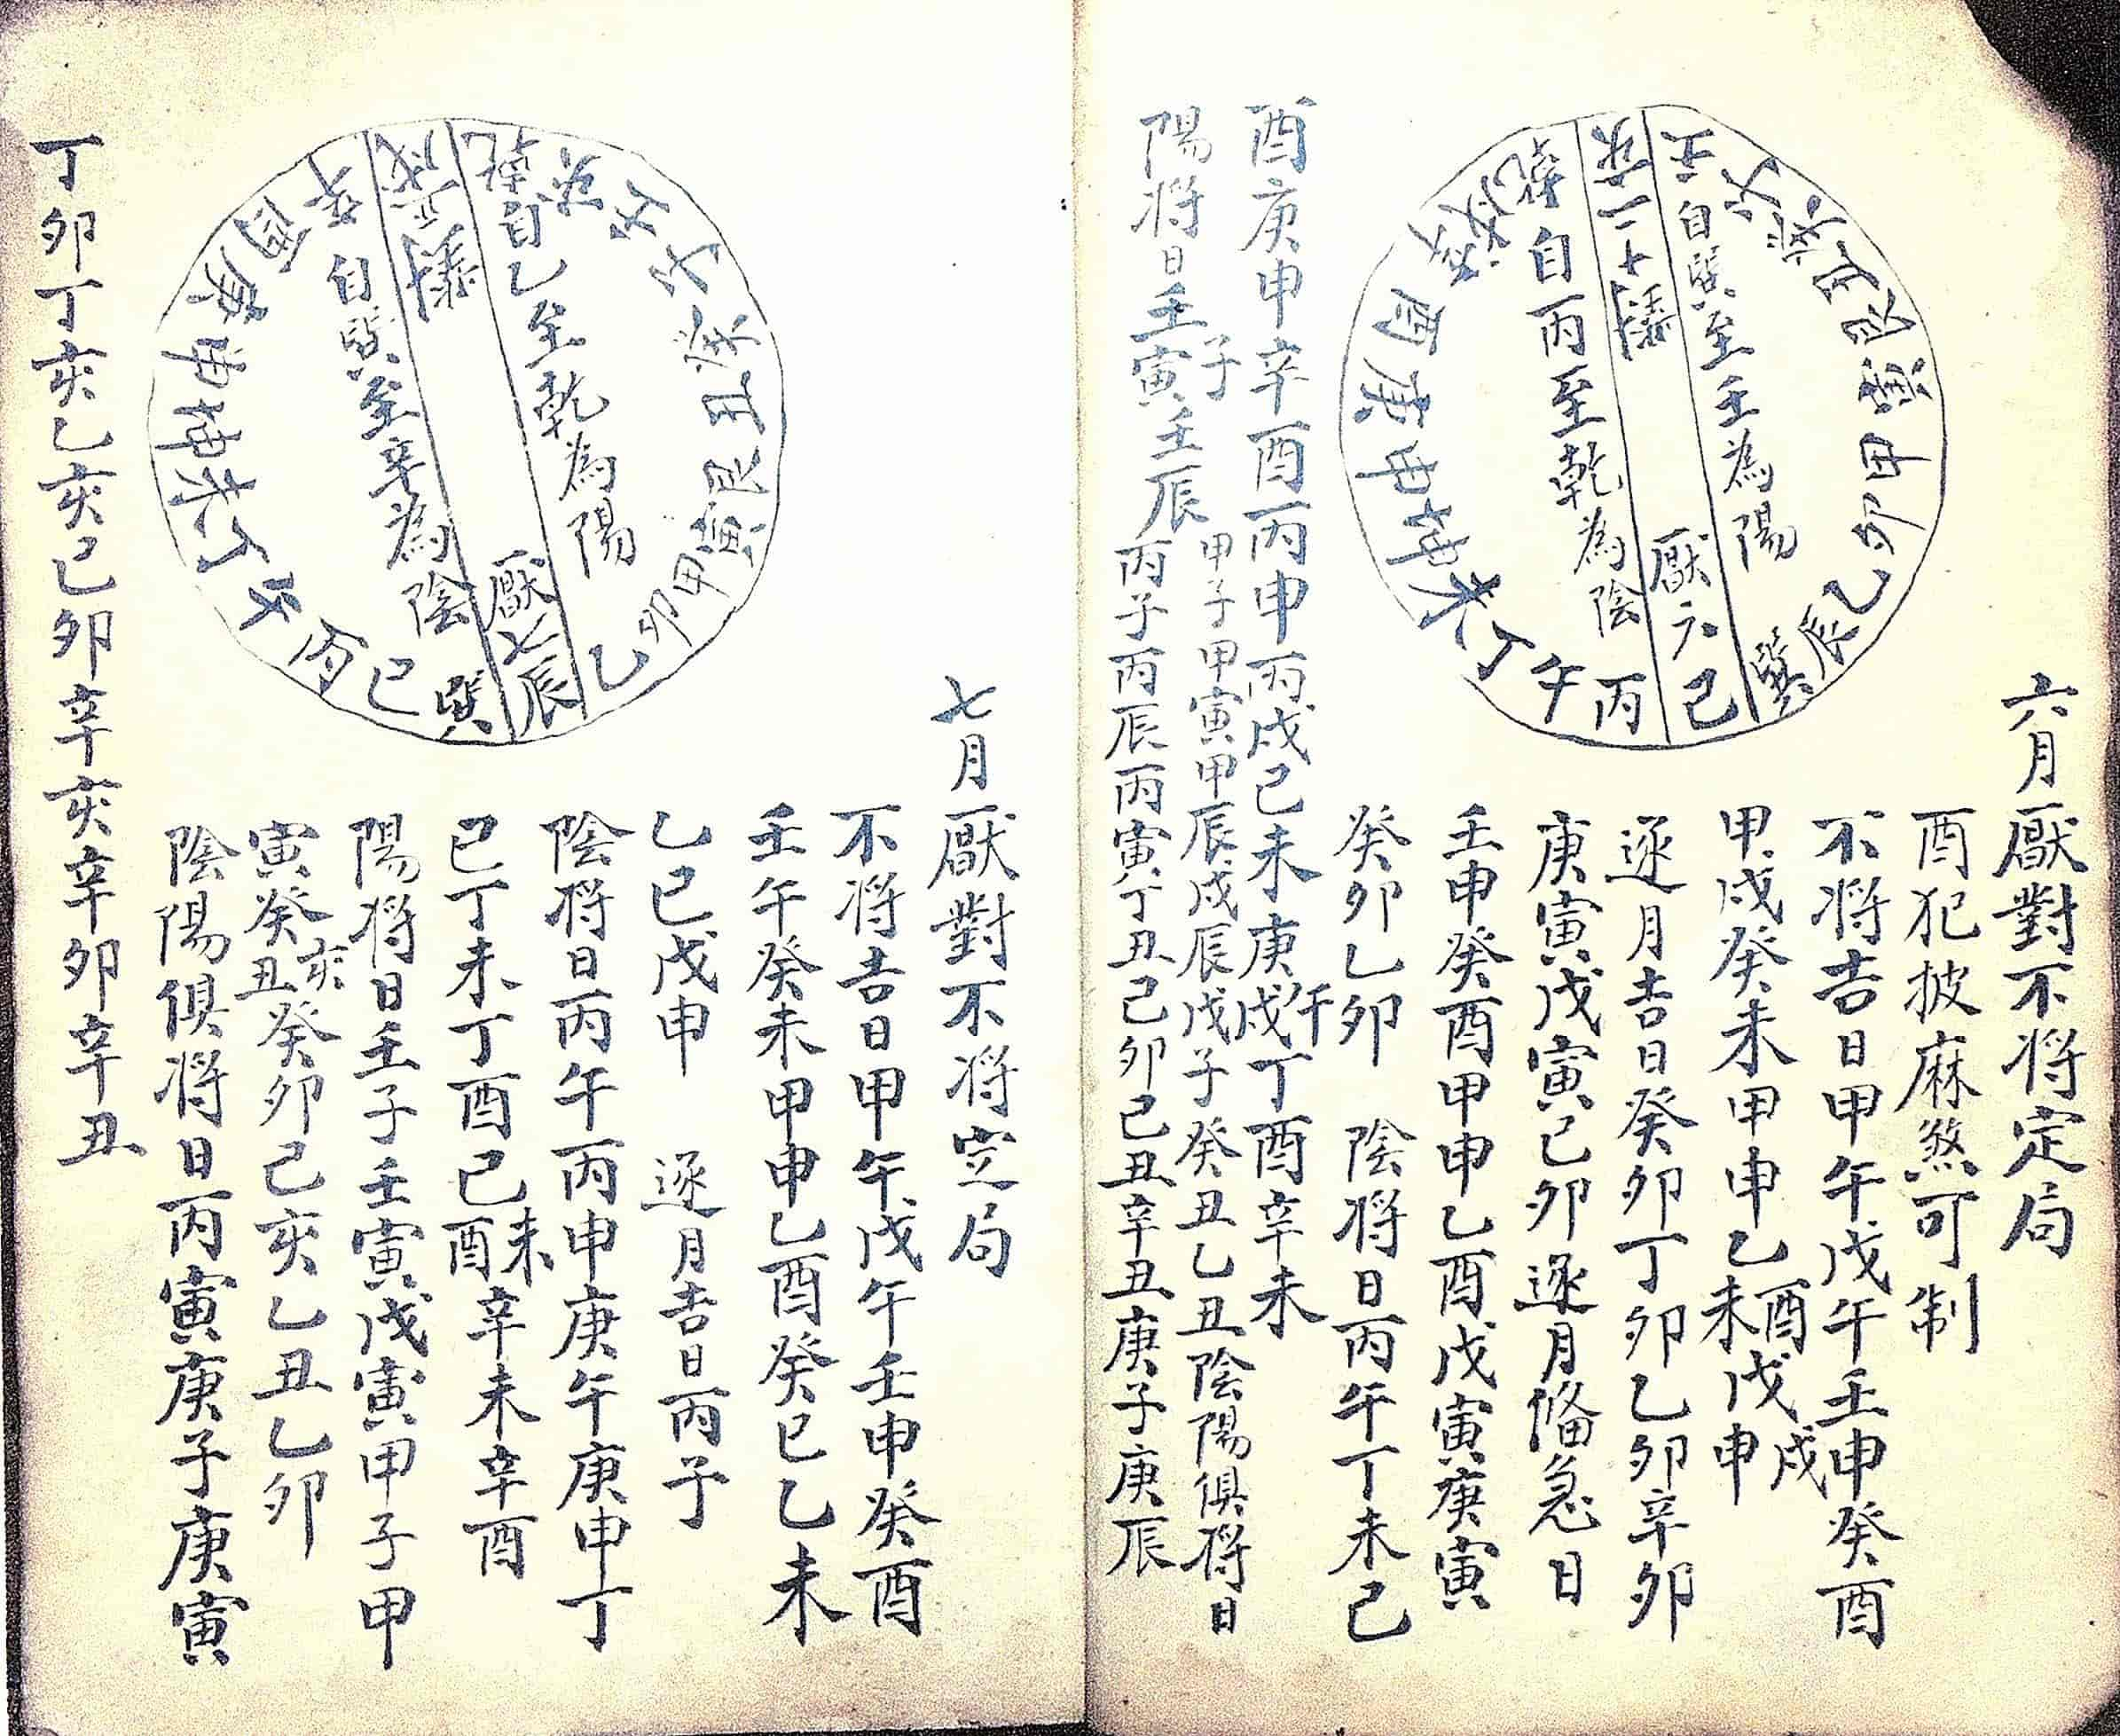 六月厭對不将定局
酉犯披麻煞可制
不将吉日甲午戊午壬申癸酉
甲戌癸未甲申乙未酉戊申戌
逐月吉日癸卯丁卯乙卯辛卯
庚寅戊寅己卯逐月俻急日
壬申癸酉甲申乙酉戊寅庚寅
癸卯乙卯 陰将日丙午丁未己
酉庚申辛酉丙申丙戌己未庚戌午丁酉辛未
陽将日壬子寅壬辰甲子甲寅甲辰戊辰戊子癸丑乙丑陰陽俱将日
丙子丙辰丙寅丁丑己卯己丑辛丑庚子庚辰
自巽至壬為陽
厭六巳
自丙至乾為陰
壬
亥
乾
戌
辛
酉
庚
申
坤
未
丁
午
丙
巽
辰
乙
卯
甲
寅
艮
丑
七月厭對不将定局
不将吉日甲午戊午壬申癸酉
壬午癸未甲申乙酉癸巳乙未
乙巳戊申 逐月吉日丙子
陰将日丙午丙申庚午庚申丁
巳丁未丁酉己酉未辛未辛酉
陽将日壬子壬寅戊寅甲子甲
寅癸丑亥癸卯己亥乙丑乙卯
陰陽俱将日丙寅庚子庚寅
丁卯丁亥乙亥己卯辛亥辛卯辛丑
自乙至乾為陽
厭七辰
自巽至辛為陰
乾
戌
辛
酉
庚
申
坤
未
丁
午
丙
巳
巽
乙
卯
甲
寅
艮
丑
癸
子
壬
亥